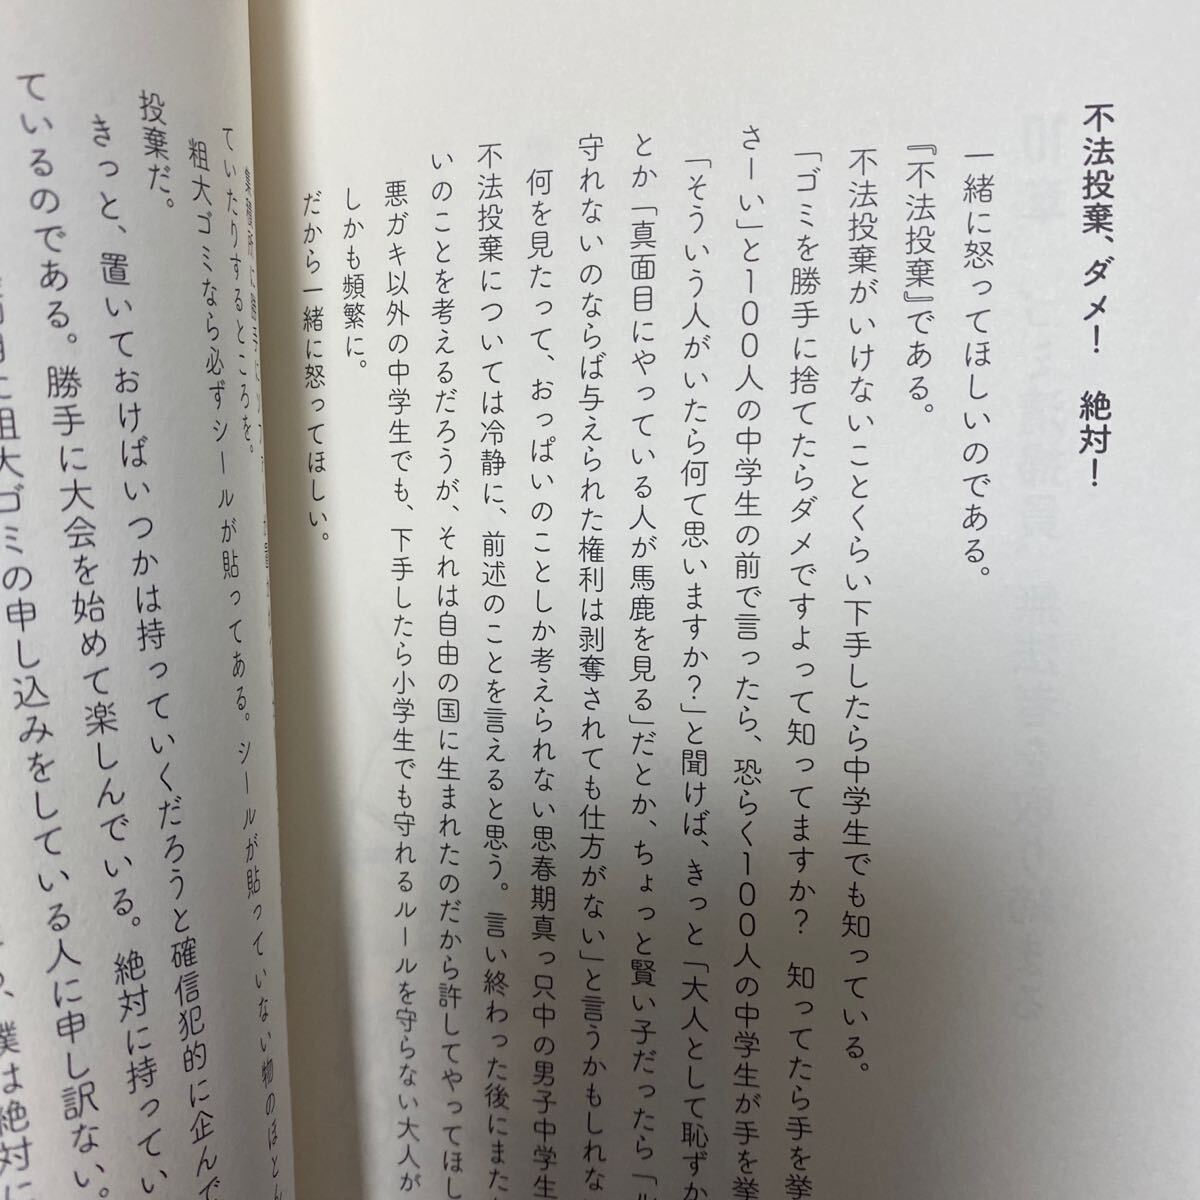 不法投棄、ダメ!　絶対!
一緒に怒ってほしいのである。
『不法投棄』である。
不法投棄がいけないことくらい下手したら中学生でも知っている。
「ゴミを勝手に捨てたらダメですよって知ってますか?　知ってたら手を挙
さーい」と100人の中学生の前で言ったら、恐らく100人の中学生が手を挙
「そういう人がいたら何て思いますか?」と聞けば、きっと「大人として恥ずか
とか「真面目にやっている人が馬鹿を見る」だとか、ちょっと賢い子だったら「ル
守れないのならば与えられた権利は剥奪されても仕方がない」と言うかもしれな
何を見たって、おっぱいのことしか考えられない思春期真っ只中の男子中学生
不法投棄については冷静に、前述のことを言えると思う。言い終わった後にまたお
いのことを考えるだろうが、それは自由の国に生まれたのだから許してやってほし
悪ガキ以外の中学生でも、下手したら小学生でも守れるルールを守らない大人が
しかも頻繁に。
だから一緒に怒ってほしい。
ていたりするところを。
粗大ゴミなら必ずシールが貼ってある。シールが貼っていない物のほとん
投棄だ。
きっと、置いておけばいつかは持っていくだろうと確信犯的に企んで
ているのである。勝手に大会を始めて楽しんでいる。絶対に持ってい
に粗大ゴミの申し込みをしている人に申し訳ない。
、僕は絶対に